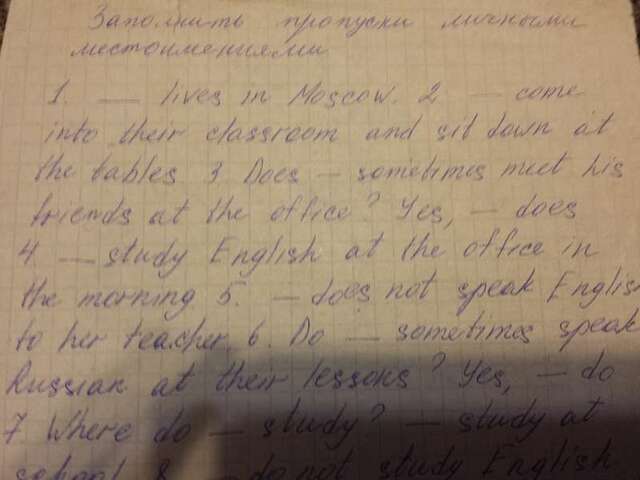 Заполнить пропуски личными
местоимениями
1. — lives in Moscow. 2 — come
into their classroom and sit down at
the tables 3 Does — sometimes meet his
friends at the office? Yes, — does
4 — study English at the office in
the morning 5. — does not speak English
to her teacher. 6. Do — sometimes speak
Russian at their lessons? Yes, — do
7 Where do — study? — study at
school 8 — do not study English